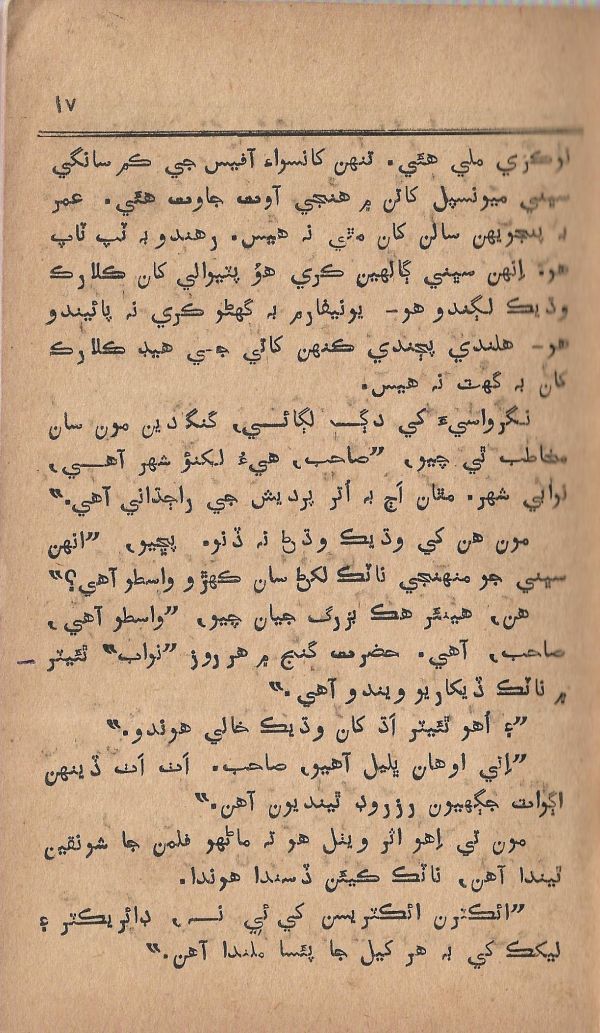 ١٧
نوڪري ملي هئي. تنهن کانسواءِ آفيس جي ڪم سانگي
سڀني ميونسپل کاتن ۾ هنجي آوت جاوت هئي. عمر
به پنجويهن سالن کان مٿي نه هيس. رهندو به ٽپ ٽاپ
هو. اِنهن سڀني ڳالهين ڪري هوُ پٽيوالي کان ڪلارڪ
وڌيڪ لڳندو هو- يونيفارم به گهڻو ڪري نه پائيندو
هو- هلندي پڄندي ڪنهن کاتي جي هيڊ ڪلارڪ
کان به گهٽ نہ هيس.
نگرواسيءَ کي دڳ لڳائي، گنگدين مون سان
مخاطب ٿي چيو، ”صاحب، هيءُ لکنؤ شهر آهي،
نوابي شهر. مٿان اَڄ به اُتر پرديش جي راڄڌاني آهي.“
مون هن کي وڌيڪ وڌڻ نہ ڏنو. پڇيو، ”انهن
سڀني جو منهنجي ناٽڪ لکڻ سان ڪهڙو واسطو آهي؟“
هن، هينئر هڪ بزرگ جيان چيو، ”واسطو آهي،
صاحب، آهي. حضرت گنج ۾ هر روز ”نواب“ ٿئيٽر –
۾ ناٽڪ ڏيکاريو ويندو آهي.“
”۽ اُهو ٿئيٽر اَڌ کان وڌيڪ خالي هوندو.“
”اِتي اوهان ڀليل آهيو، صاحب. اَٺ اَٺ ڏينهن
اڳواٽ جڳهيون رزروڊ ٿينديون آهن.“
مون تي اِهو اثر ويٺل هو تہ ماڻهو فلمن جا شونقين
ٿيندا آهن، ناٽڪ ڪيئن ڏسندا هوندا.
”ائڪٽرن ائڪٽريسن کي ئي نہ، ڊائريڪٽر ۽
ليکڪ کي به هر کيل جا پئسا ملندا آهن.“